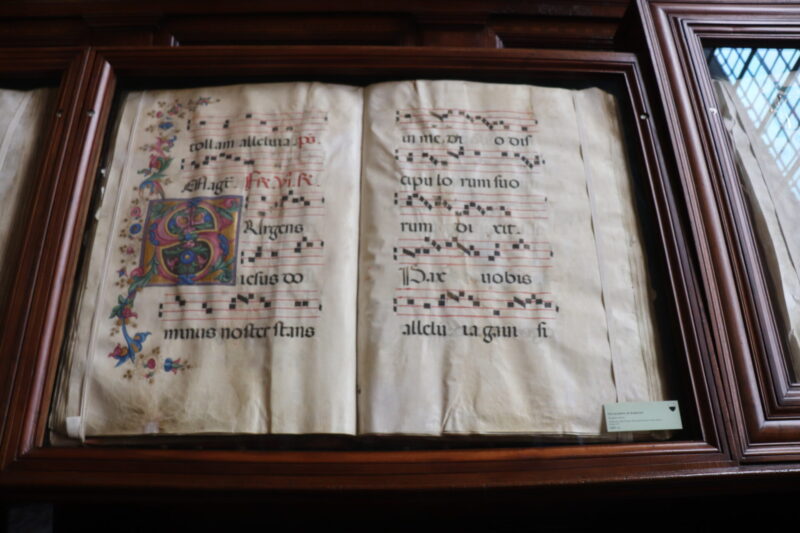 tollam alleluia. ps.
Magt. Fre. vi. fe.
SUrgens
iesus do
minus noster stans
in me di o dis
cipu lo rum suo
rum di xit.
Pax uobis
allelu ia gaui si